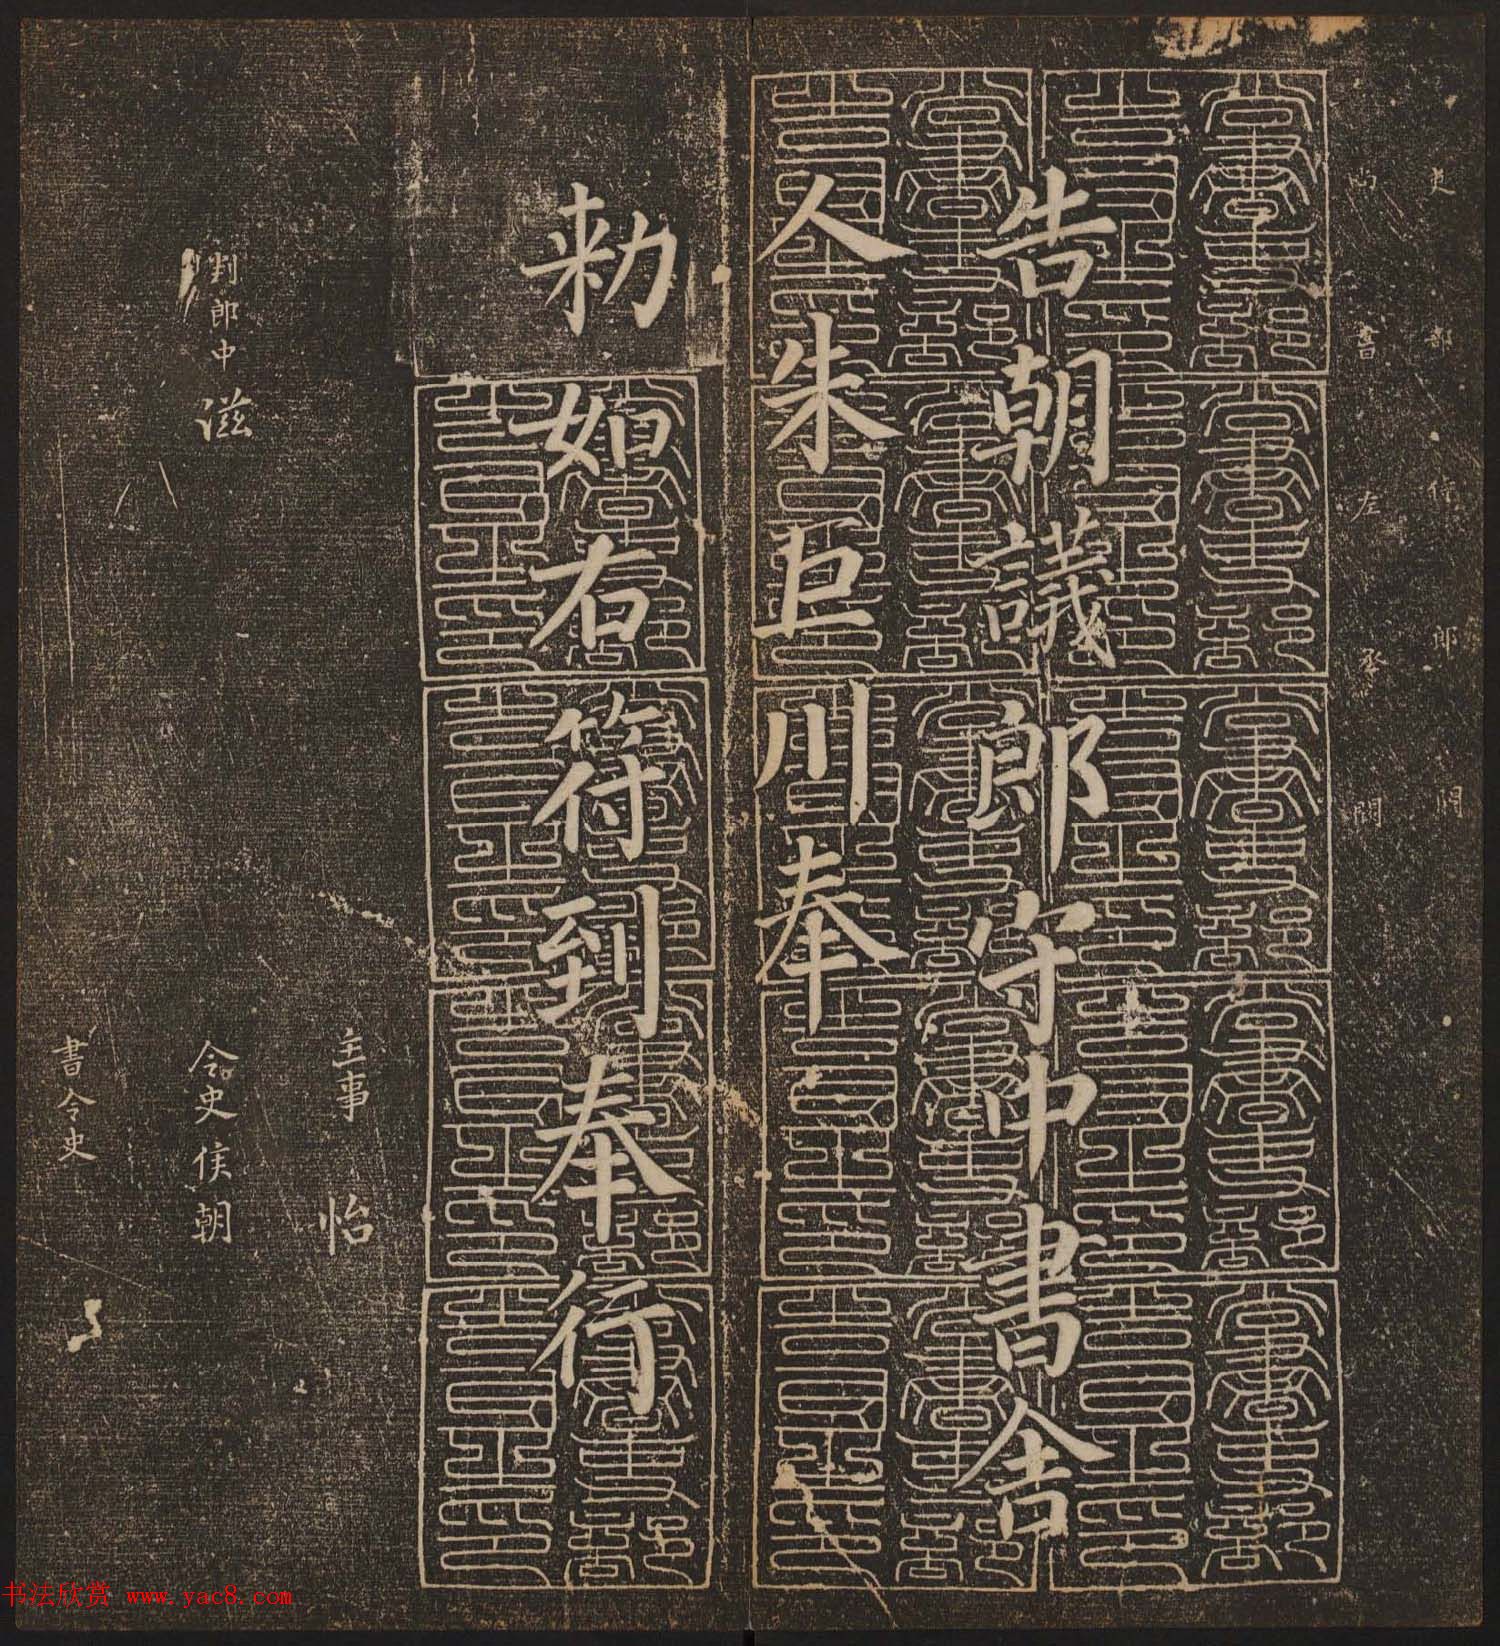 吏部侍郎闕
尚書左丞闕
告朝議郎守中書舍
人朱巨川奉
敕如右符到奉行
主事怡
判郎中滋
令史侯朝
書令史
书法欣赏 www.yac8.com